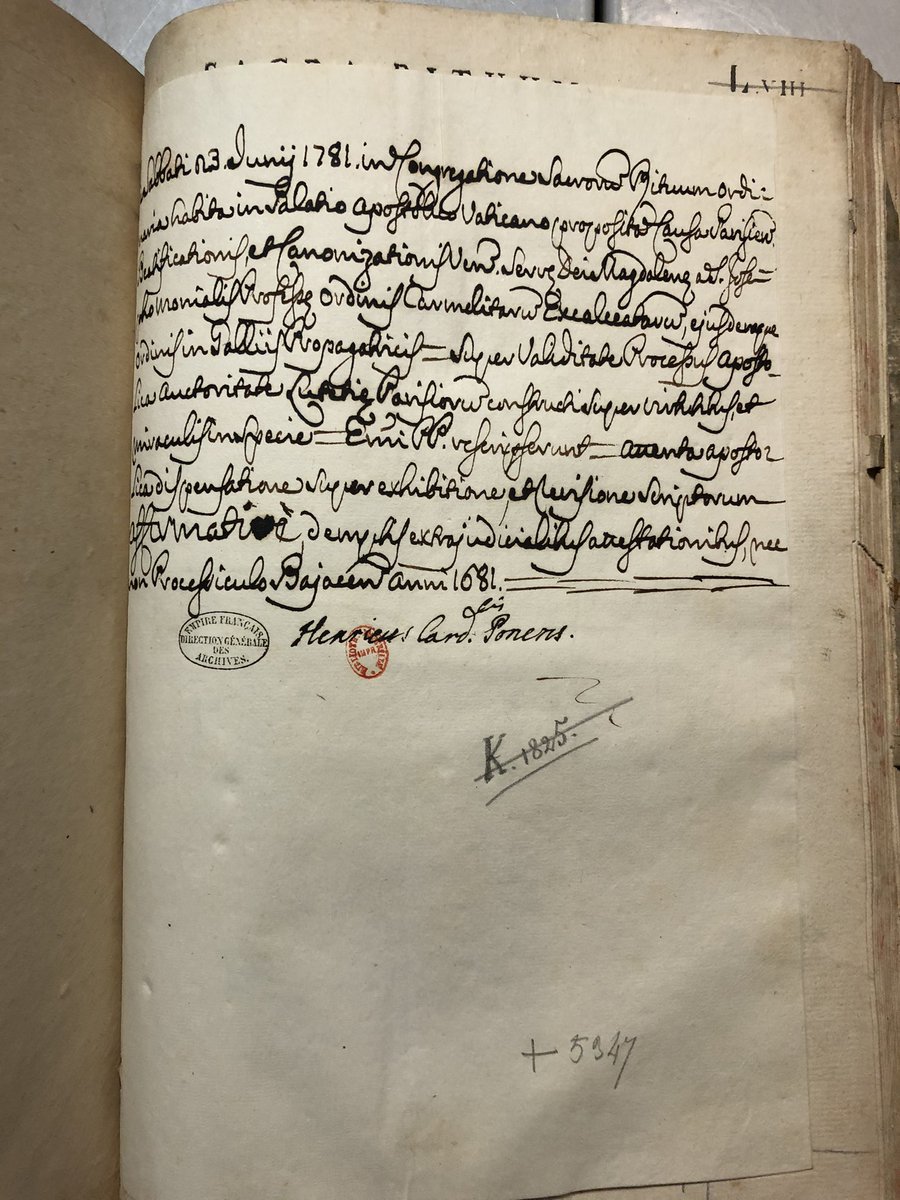 SACRA RITUUM
L.VIII
Sabbati 23. Junij 1781. in Congregatione Sacrorũ Rituum Ordi:
naria habita in Palatio Apostolico Vaticano, propositâ Causâ Parisieñ.
Beatificationis, et Canonizationis Veñ. Servę Dei Magdalenę a S. Jose-
pho Monialis Professę Ordinis Carmelitarũ Excalceatarũ, ejusdemque
Ordinis in Galliis Propagatricis = Super Validitate Processus Aposto-
lica Auctoritate Lutetię Parisiorũ constructi super virtutibus, et
miraculis in specie = Emi PP. rescripserunt = attenta Aposto:
lica dispensatione super exhibitione, et revisione scriptorum
affirmativè, demptis extrajudicialibus attestationibus, nec
non Processiculo Bajaceñ. anni 1681.
Henricus Card.lis Ponens.
EMPIRE FRANÇAIS
DIRECTION GÉNÉRALE
DES
ARCHIVES.
K. 1825.
+ 5347